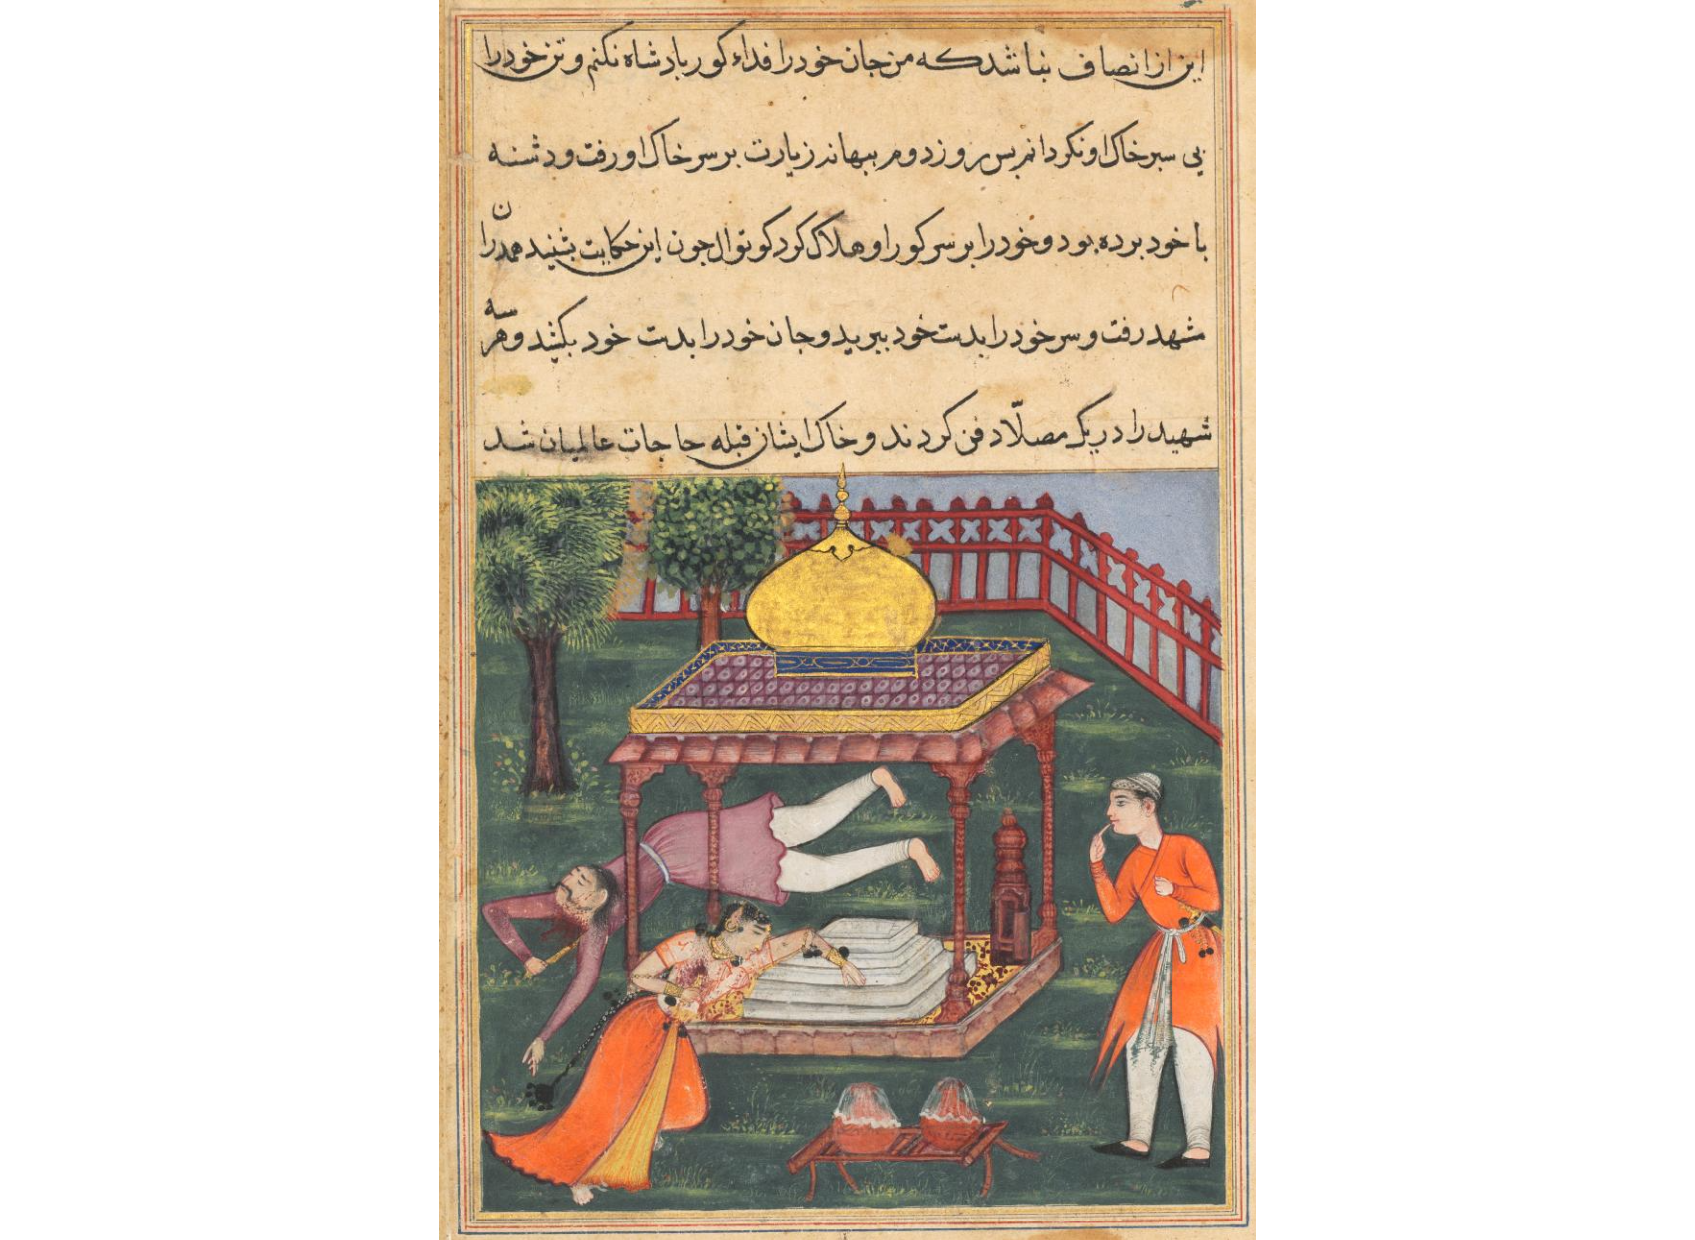 این از انصاف نباشد که من جان خود را فداء کور بادشاه نکنم و تن خود را
پی سبر خاک او نکردانم بس روز دوم ببهانه زیارت بر سر خاک او رفت و دشنه
با خود برده بود و خود را بر سر کور او هلاک کرد کوتوال جون این حکایت بشنید همدران
مشهد رفت و سر خود را بدست خود ببرید و جان خود را بدست خود بکشد و هر سه
شهید را در یک مصلّا دفن کردند و خاک ایشان قبله حاجات عالمیان شد